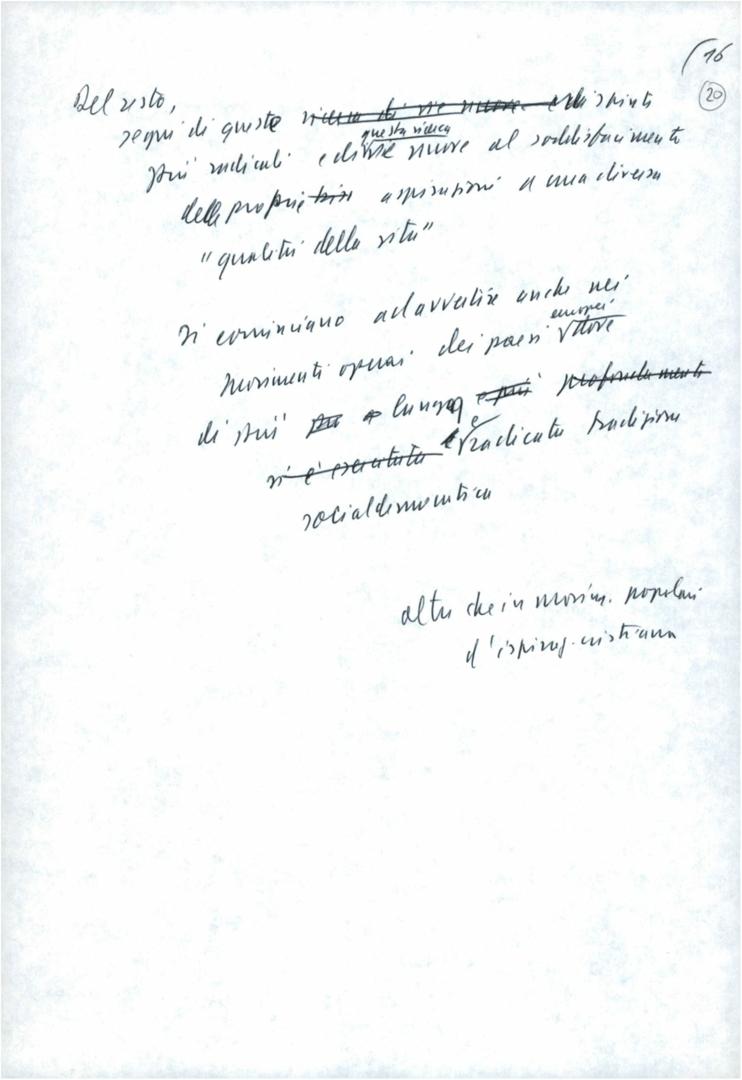 16
20
Del resto,
segni di queste ricerca di vie nuove e di spinte
questa ricerca
più radicali e di vie nuove al soddisfacimento
delle proprie aspirazioni a una diversa
"qualità della vita"
si cominciano ad avvertire anche nei
europei
movimenti operai dei paesi dove
di più lunga e più profondamente
si è esercitata e radicata tradizione
socialdemocratica
oltre che in movim. popolari
d'ispiraz. cristiana